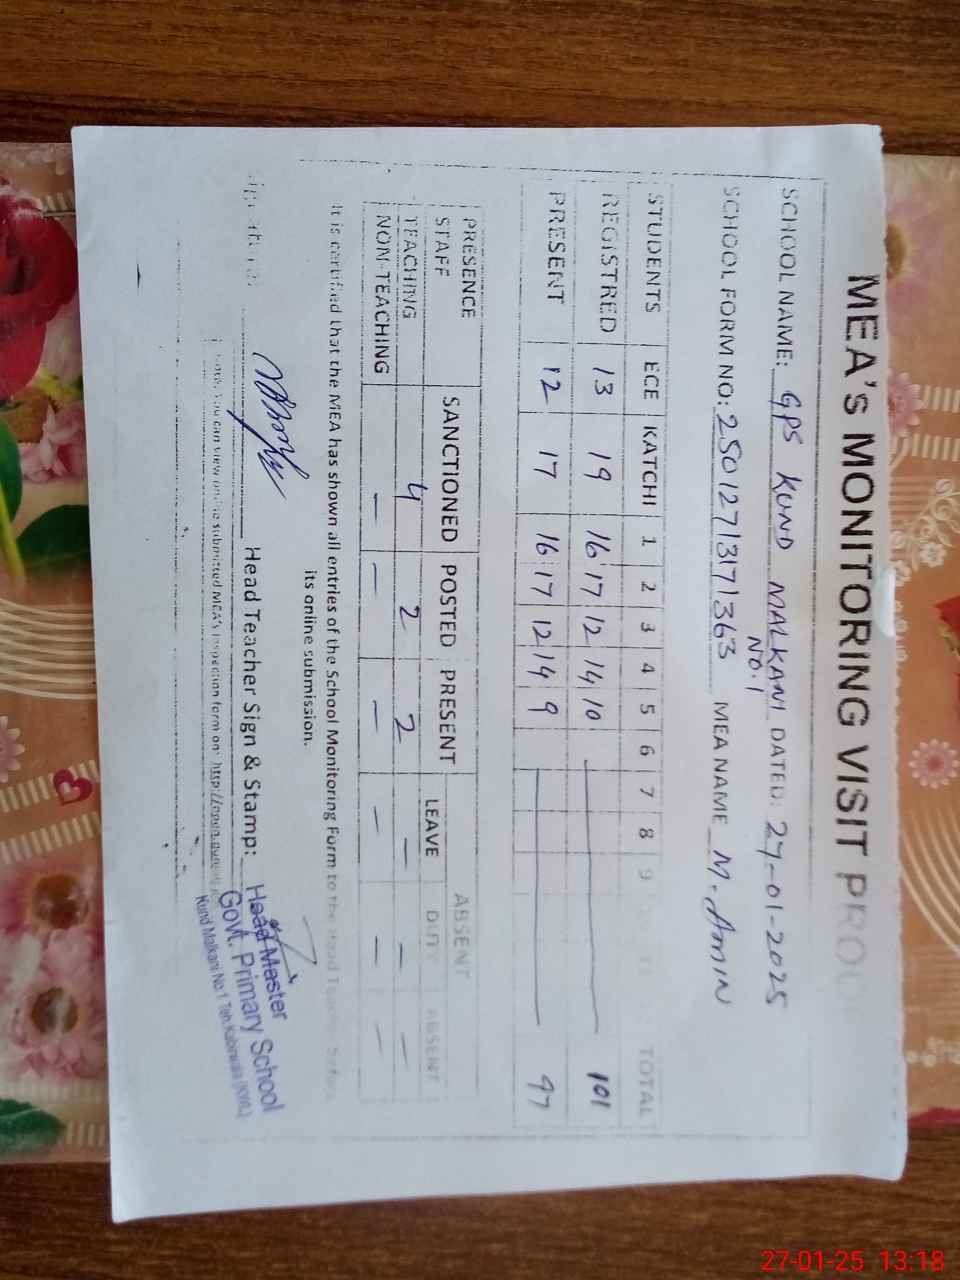 MEA's MONITORING VISIT PROO
SCHOOL NAME: GPS KUND MALKANI NO.1 DATED: 27-01-2025
SCHOOL FORM NO: 250127131371363 MEA NAME M. AMIN
STUDENTS ECE KATCHI 1 2 3 4 5 6 7 8 9 TOTAL
REGISTRED 13 19 16 17 12 14 10 101
PRESENT 12 17 16 17 12 14 9 97
PRESENCE STAFF SANCTIONED POSTED PRESENT ABSENT
LEAVE DUTY ABSENT
TEACHING 4 2 2 - - -
NON-TEACHING - - - - - -
It is certified that the MEA has shown all entries of the School Monitoring Form to the Head Teacher before
its online submission.
Signature: Head Teacher Sign & Stamp: Head Master
Govt. Primary School
Kund Malkani No.1 Teh. Kabirwala (KWL)
Note: You can view online submitted MEA's inspection form on:
27-01-25 13:18